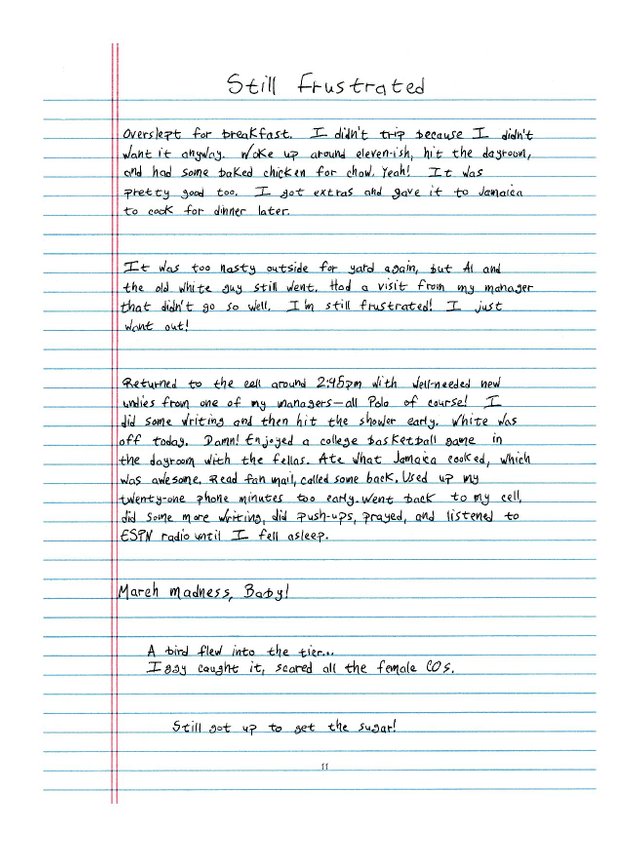 Still Frustrated
Overslept for breakfast. I didn't trip because I didn't
want it anyway. Woke up around eleven-ish, hit the dayroom,
and had some baked chicken for chow. Yeah! It was
pretty good too. I got extras and gave it to Jamaica
to cook for dinner later.
It was too nasty outside for yard again, but Al and
the old white guy still went. Had a visit from my manager
that didn't go so well. I'm still frustrated! I just
want out!
Returned to the cell around 2:45pm with well-needed new
undies from one of my managers—all Polo of course! I
did some writing and then hit the shower early. White was
off today. Damn! Enjoyed a college basketball game in
the dayroom with the fellas. Ate what Jamaica cooked, which
was awesome. Read fan mail, called some back. Used up my
twenty-one phone minutes too early. Went back to my cell,
did some more writing, did push-ups, prayed, and listened to
ESPN radio until I fell asleep.
March madness, Baby!
A bird flew into the tier...
Iggy caught it, scared all the female COs.
Still got up to get the sugar!
11